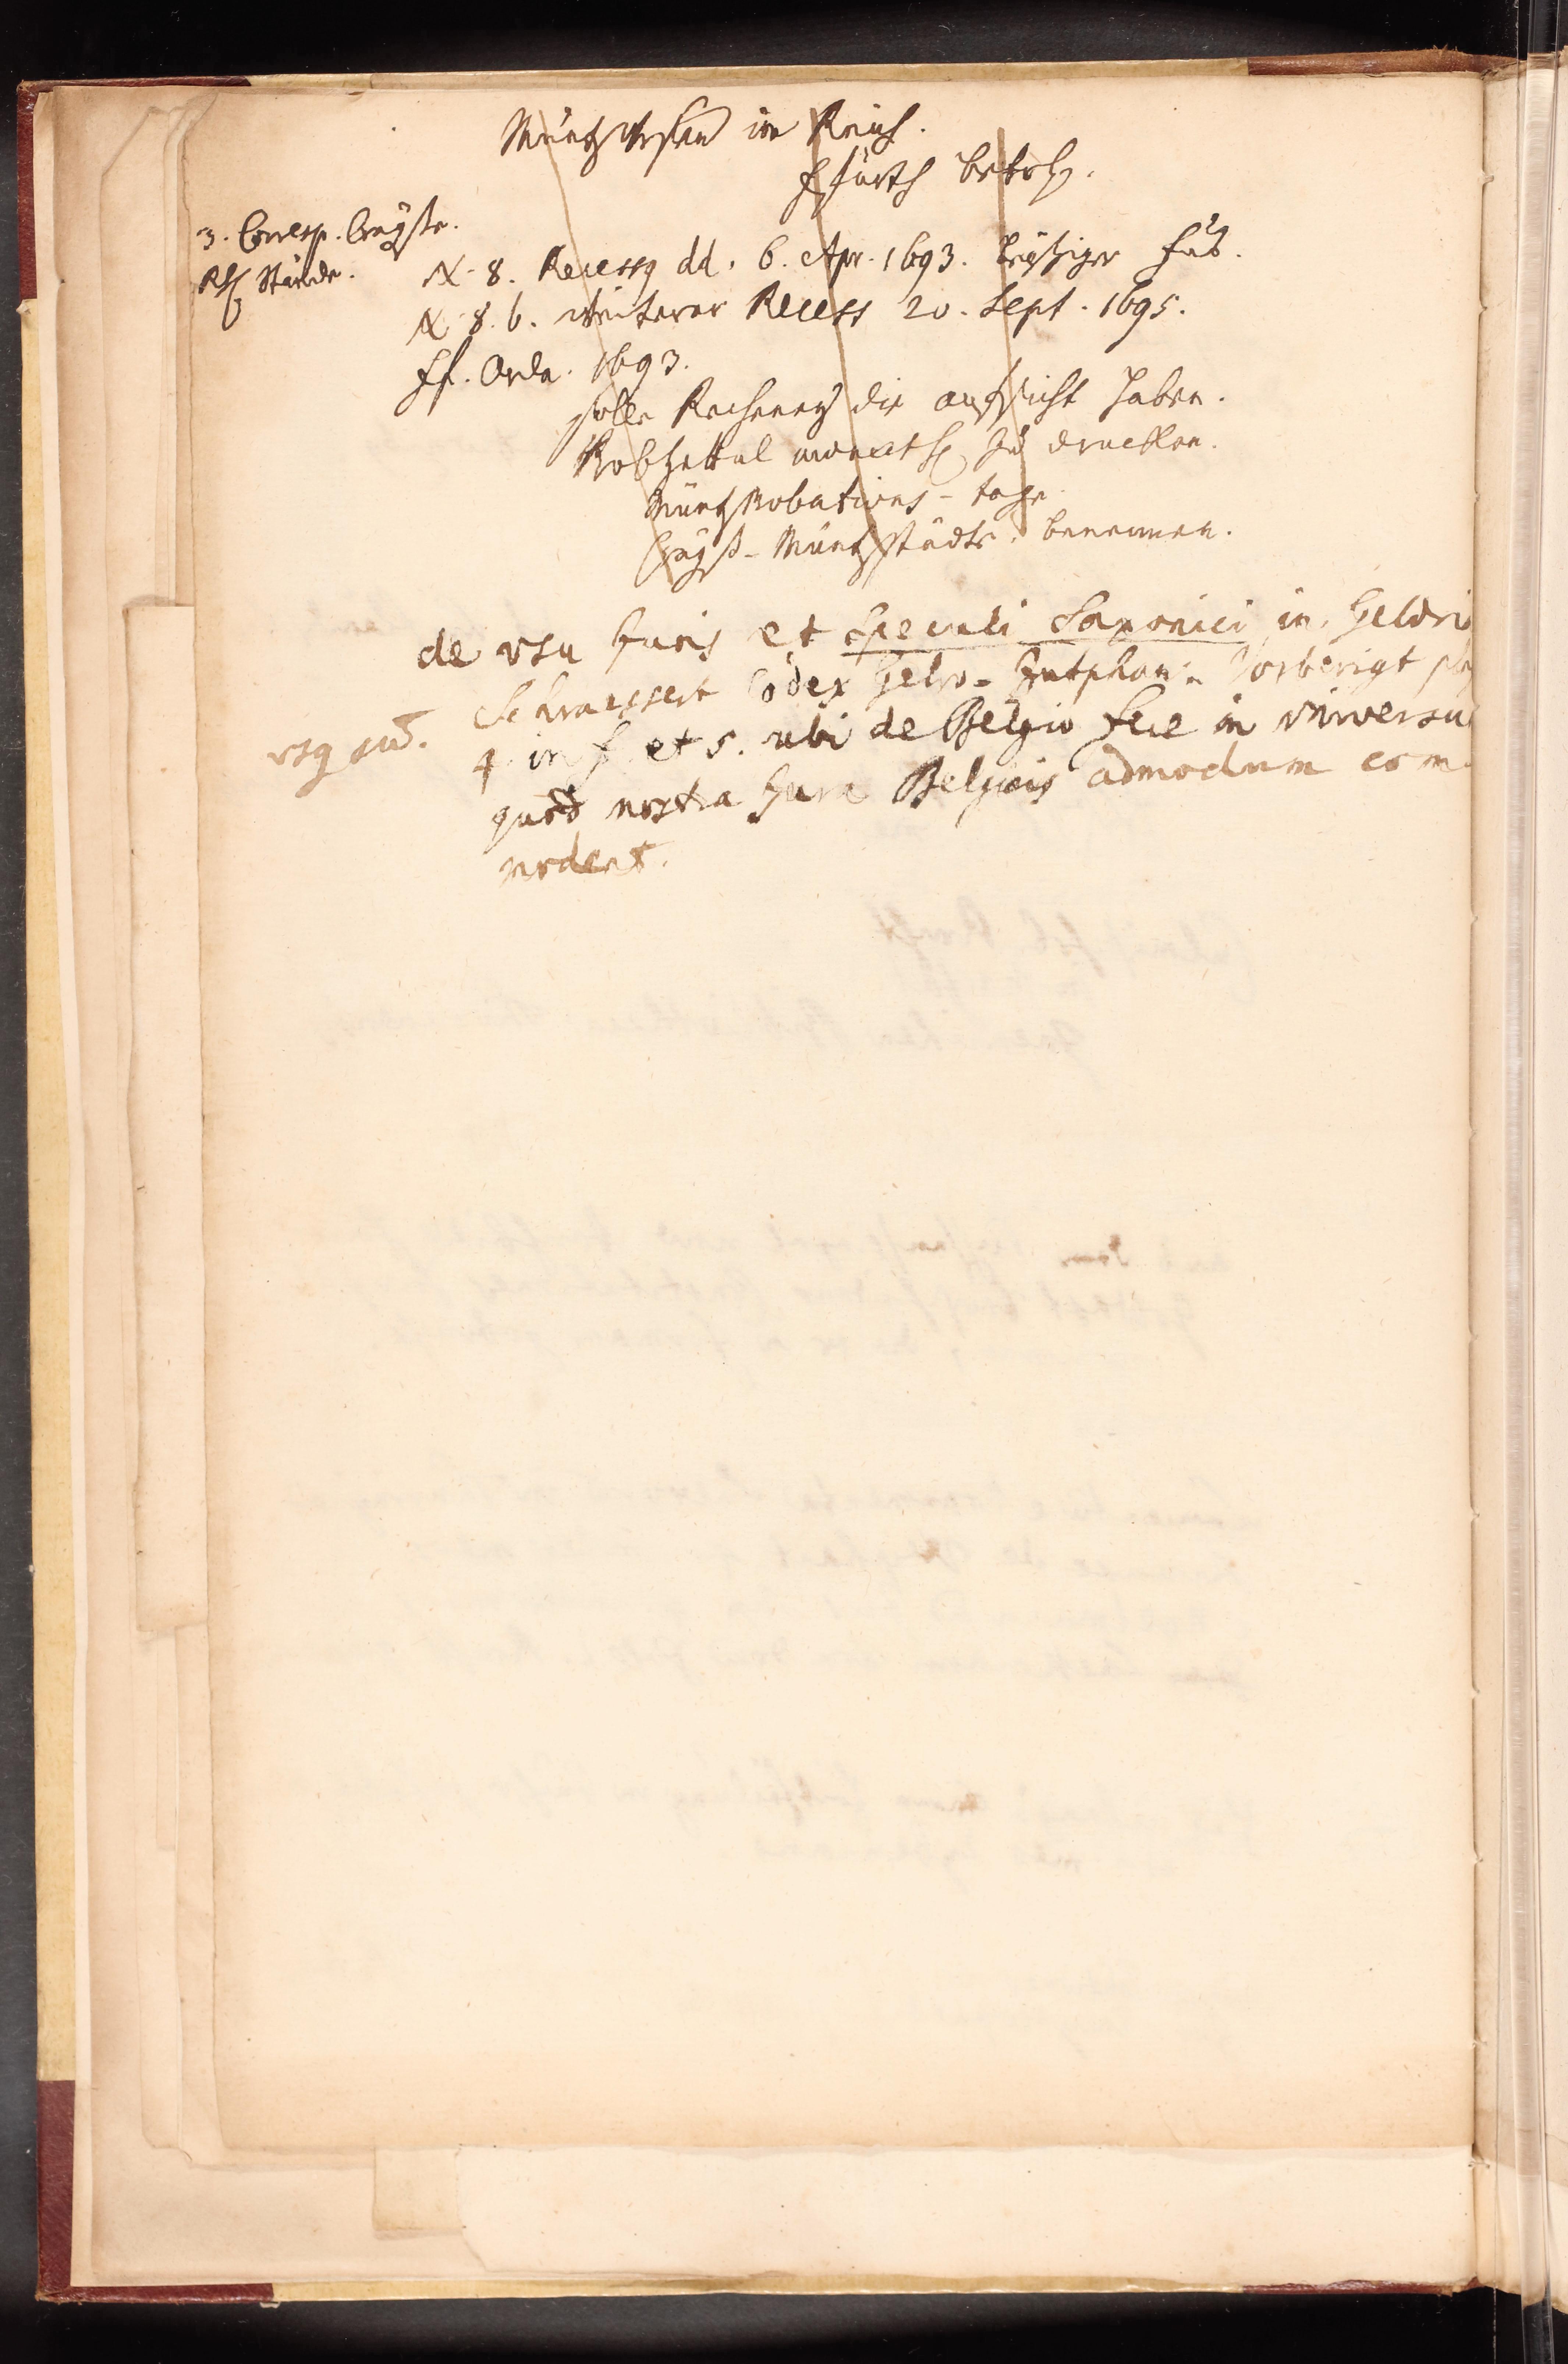 Müntzwesen im Reich.
Fürth betr.
3. Corresp. Crayße.
Stände.
N. 8. Recessq dd. 6. Apr. 1693. Leipziger Fuß.
N. 8. b. weiterer Recess 20. Sept. 1695.
Ff. Ordn. 1693.
solle die aufsicht haben.
Probzettul zu drucken.
Müntz Probations-tage
Crayß-Müntzstädte benennen.
de vsu Juris et Speculi Saxonici in Geldri
Schrassert Codex Gelro-Zutphan. Vorberigt
4. in f. et 5. ubi de Belgio fere in vniversu
quod nostra Jura Belgicis admodum com
modent.